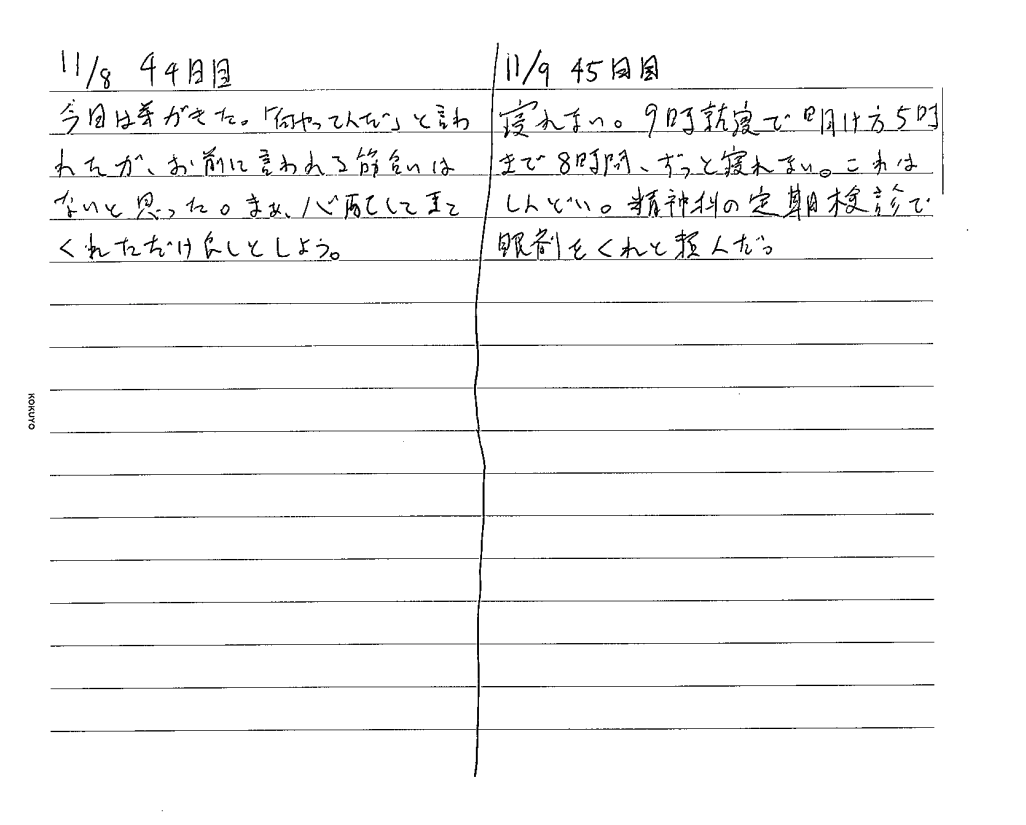 11/8 44日目
今日は弟がきた。「何やってんだ」と言わ
れたが、お前に言われる筋合いは
ないと思った。まぁ、心配してきて
くれただけ良しとしよう。
11/9 45日目
寝れない。9時就寝で明け方5時
まで8時間、ずっと寝れない。これは
しんどい。精神科の定期検診で
眠剤をくれと頼んだ。
KOKUYO